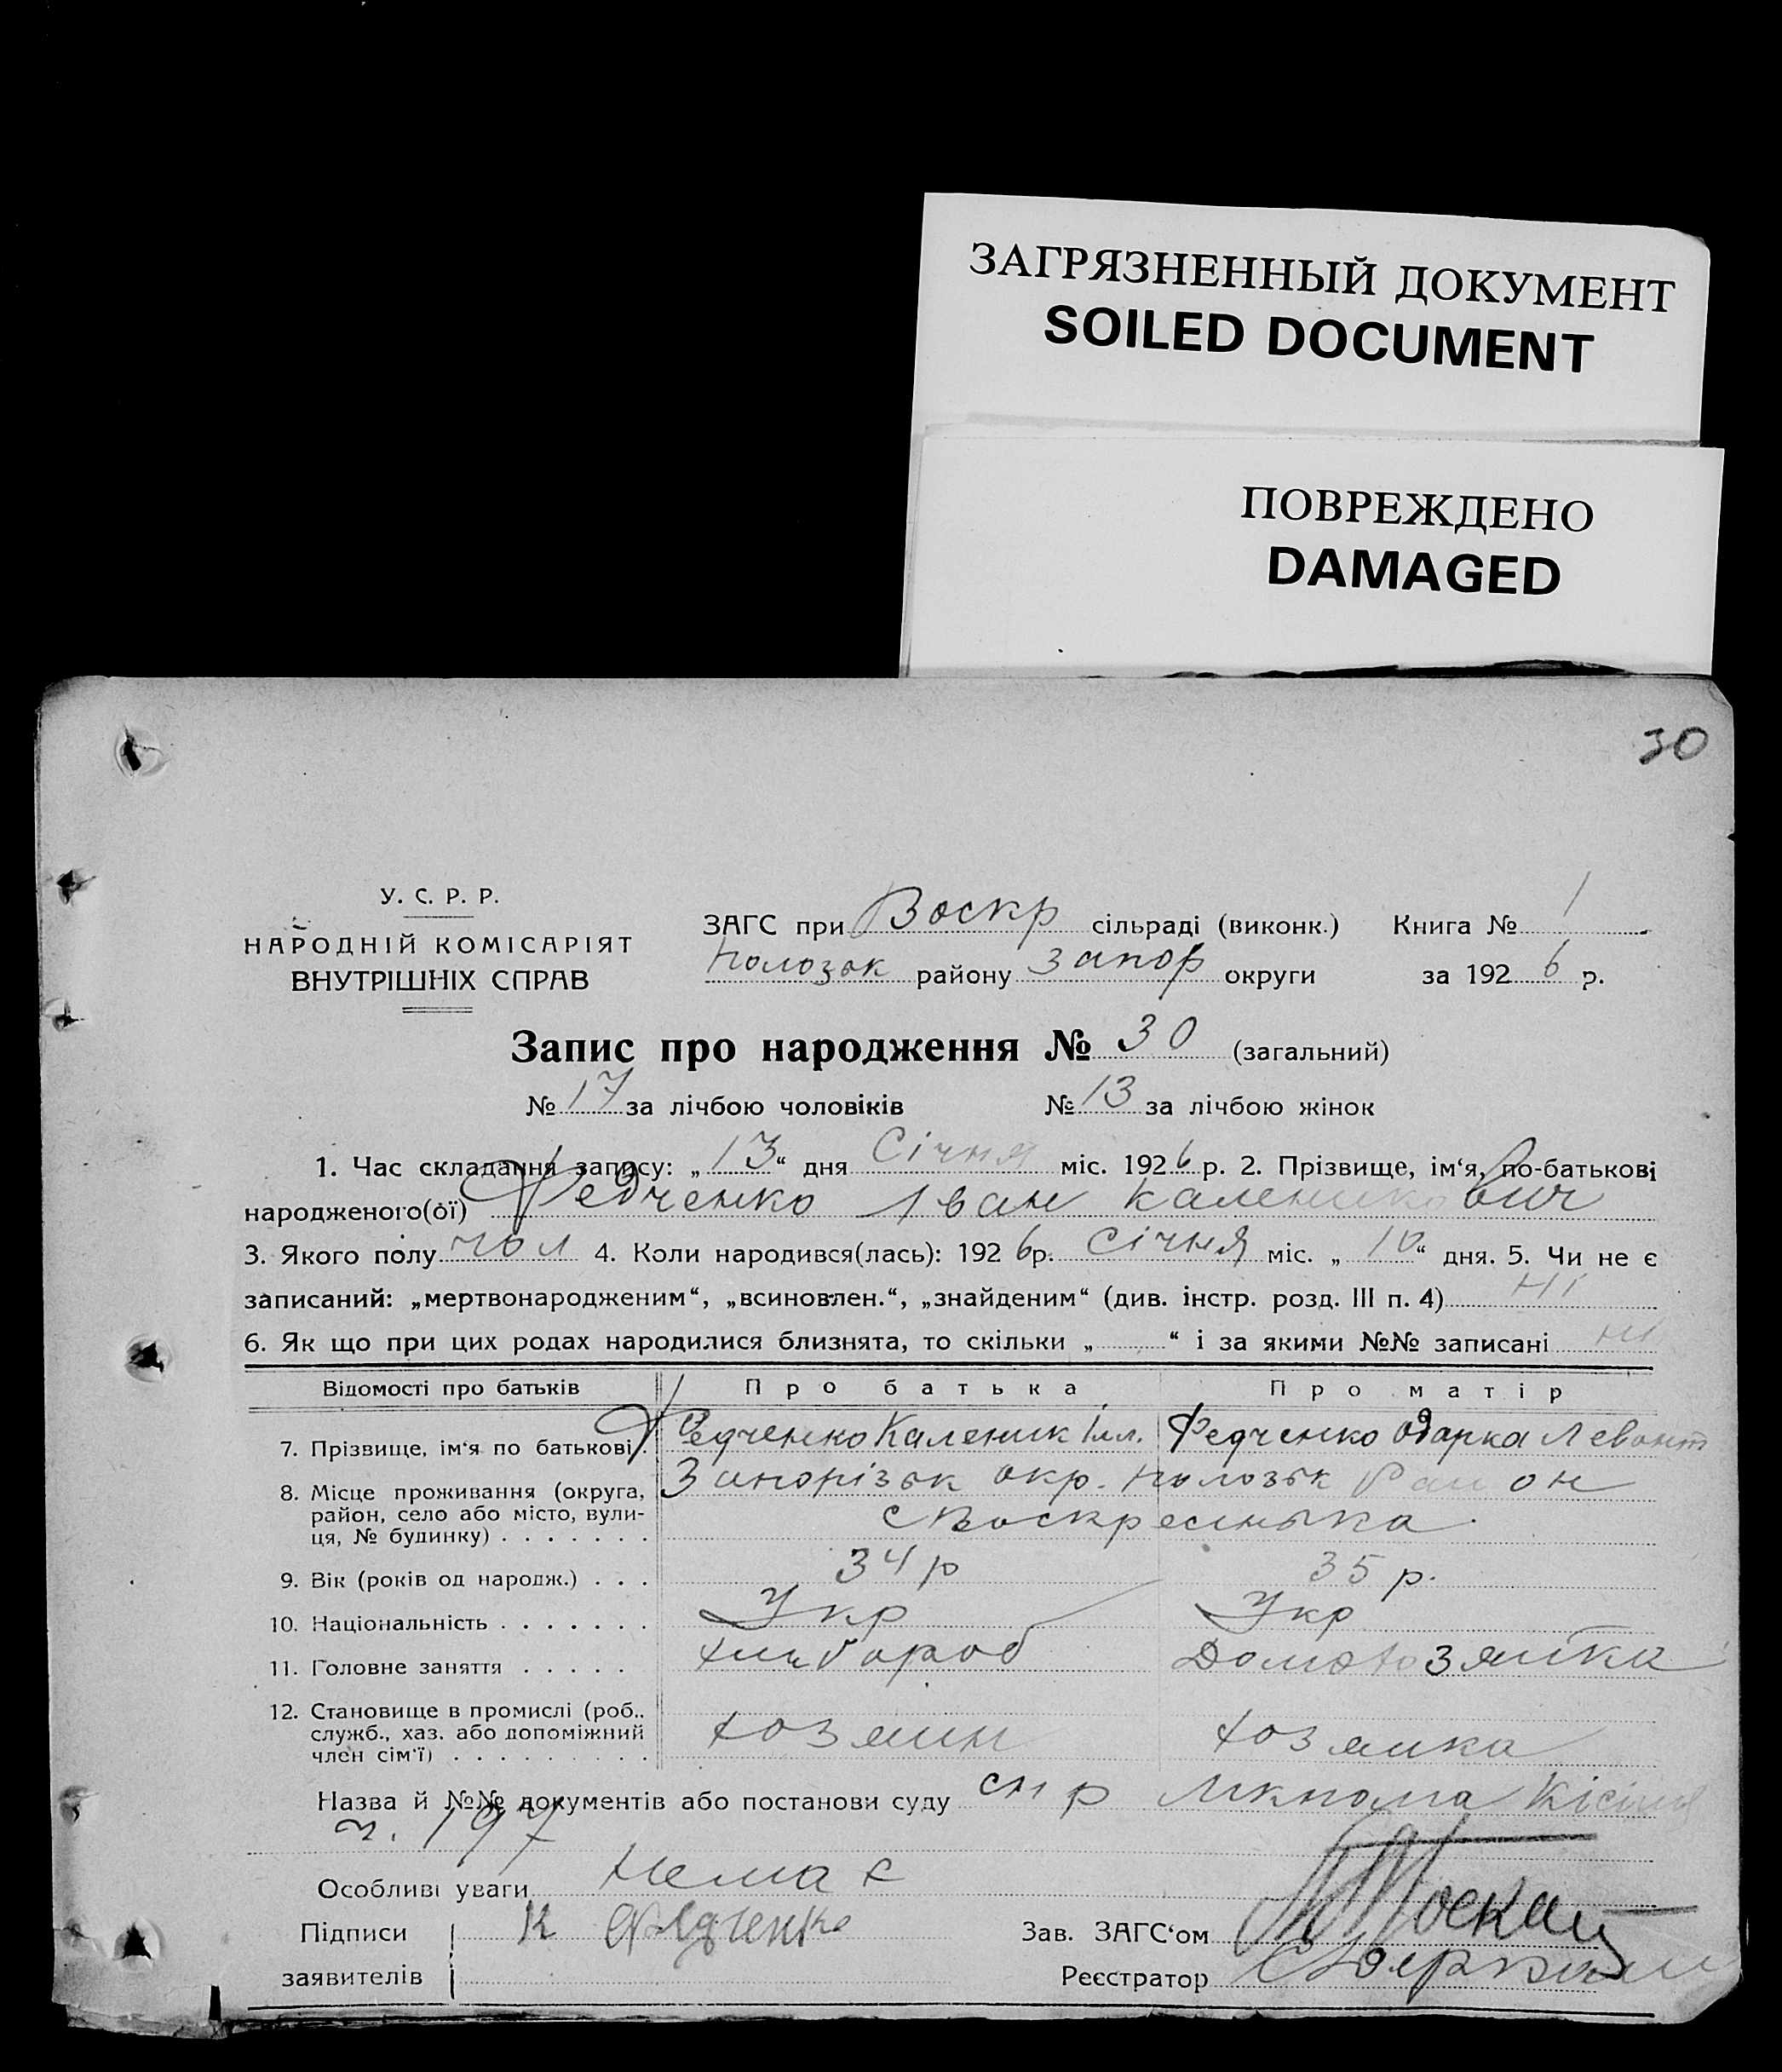 ЗАГРЯЗНЕННЫЙ ДОКУМЕНТ
SOILED DOCUMENT
ПОВРЕЖДЕНО
DAMAGED
30
У. С. Р. Р.
НАРОДНІЙ КОМІСАРІЯТ
ВНУТРІШНІХ СПРАВ
ЗАГС при Воскр сільраді (виконк.) Книга № 1
Полозьк району Запор округи за 1926 р.
Запис про народження № 30 (загальний)
№ 17 за лічбою чоловіків № 13 за лічбою жінок
1. Час складання запису: „13“ дня Січня міс. 1926 р. 2. Прізвище, ім‘я, по-батькові
народженого(ої) Федченко Іван Каленикович
3. Якого полу чол 4. Коли народився(лась): 1926 р. Січня міс. „10“ дня. 5. Чи не є
записаний: „мертвонародженим“, „всиновлен.“, „знайденим“ (див. інстр. розд. III п. 4) Ні
6. Як що при цих родах народилися близнята, то скільки „ “ і за якими №№ записані ні
Відомості про батьків Про батька Про матір
7. Прізвище, ім‘я по батькові. Федченко Каленик Федченко Одарка
8. Місце проживання (округа, район, село або місто, вулиця, № будинку) Запорізьк окр. Полозьк Район
с Воскресенька
9. Вік (років од народж.) 34 р 35 р.
10. Національність Укр Укр
11. Головне заняття хлібороб Домохозяйка
12. Становище в промислі (роб., служб., хаз. або допоміжний член сім‘ї) хозяин хозяйка
Назва й №№ документів або постанови суду
ч. 197
Особливі уваги Немає
Підписи К Федченко Зав. ЗАГС‘ом
заявителів Реєстратор